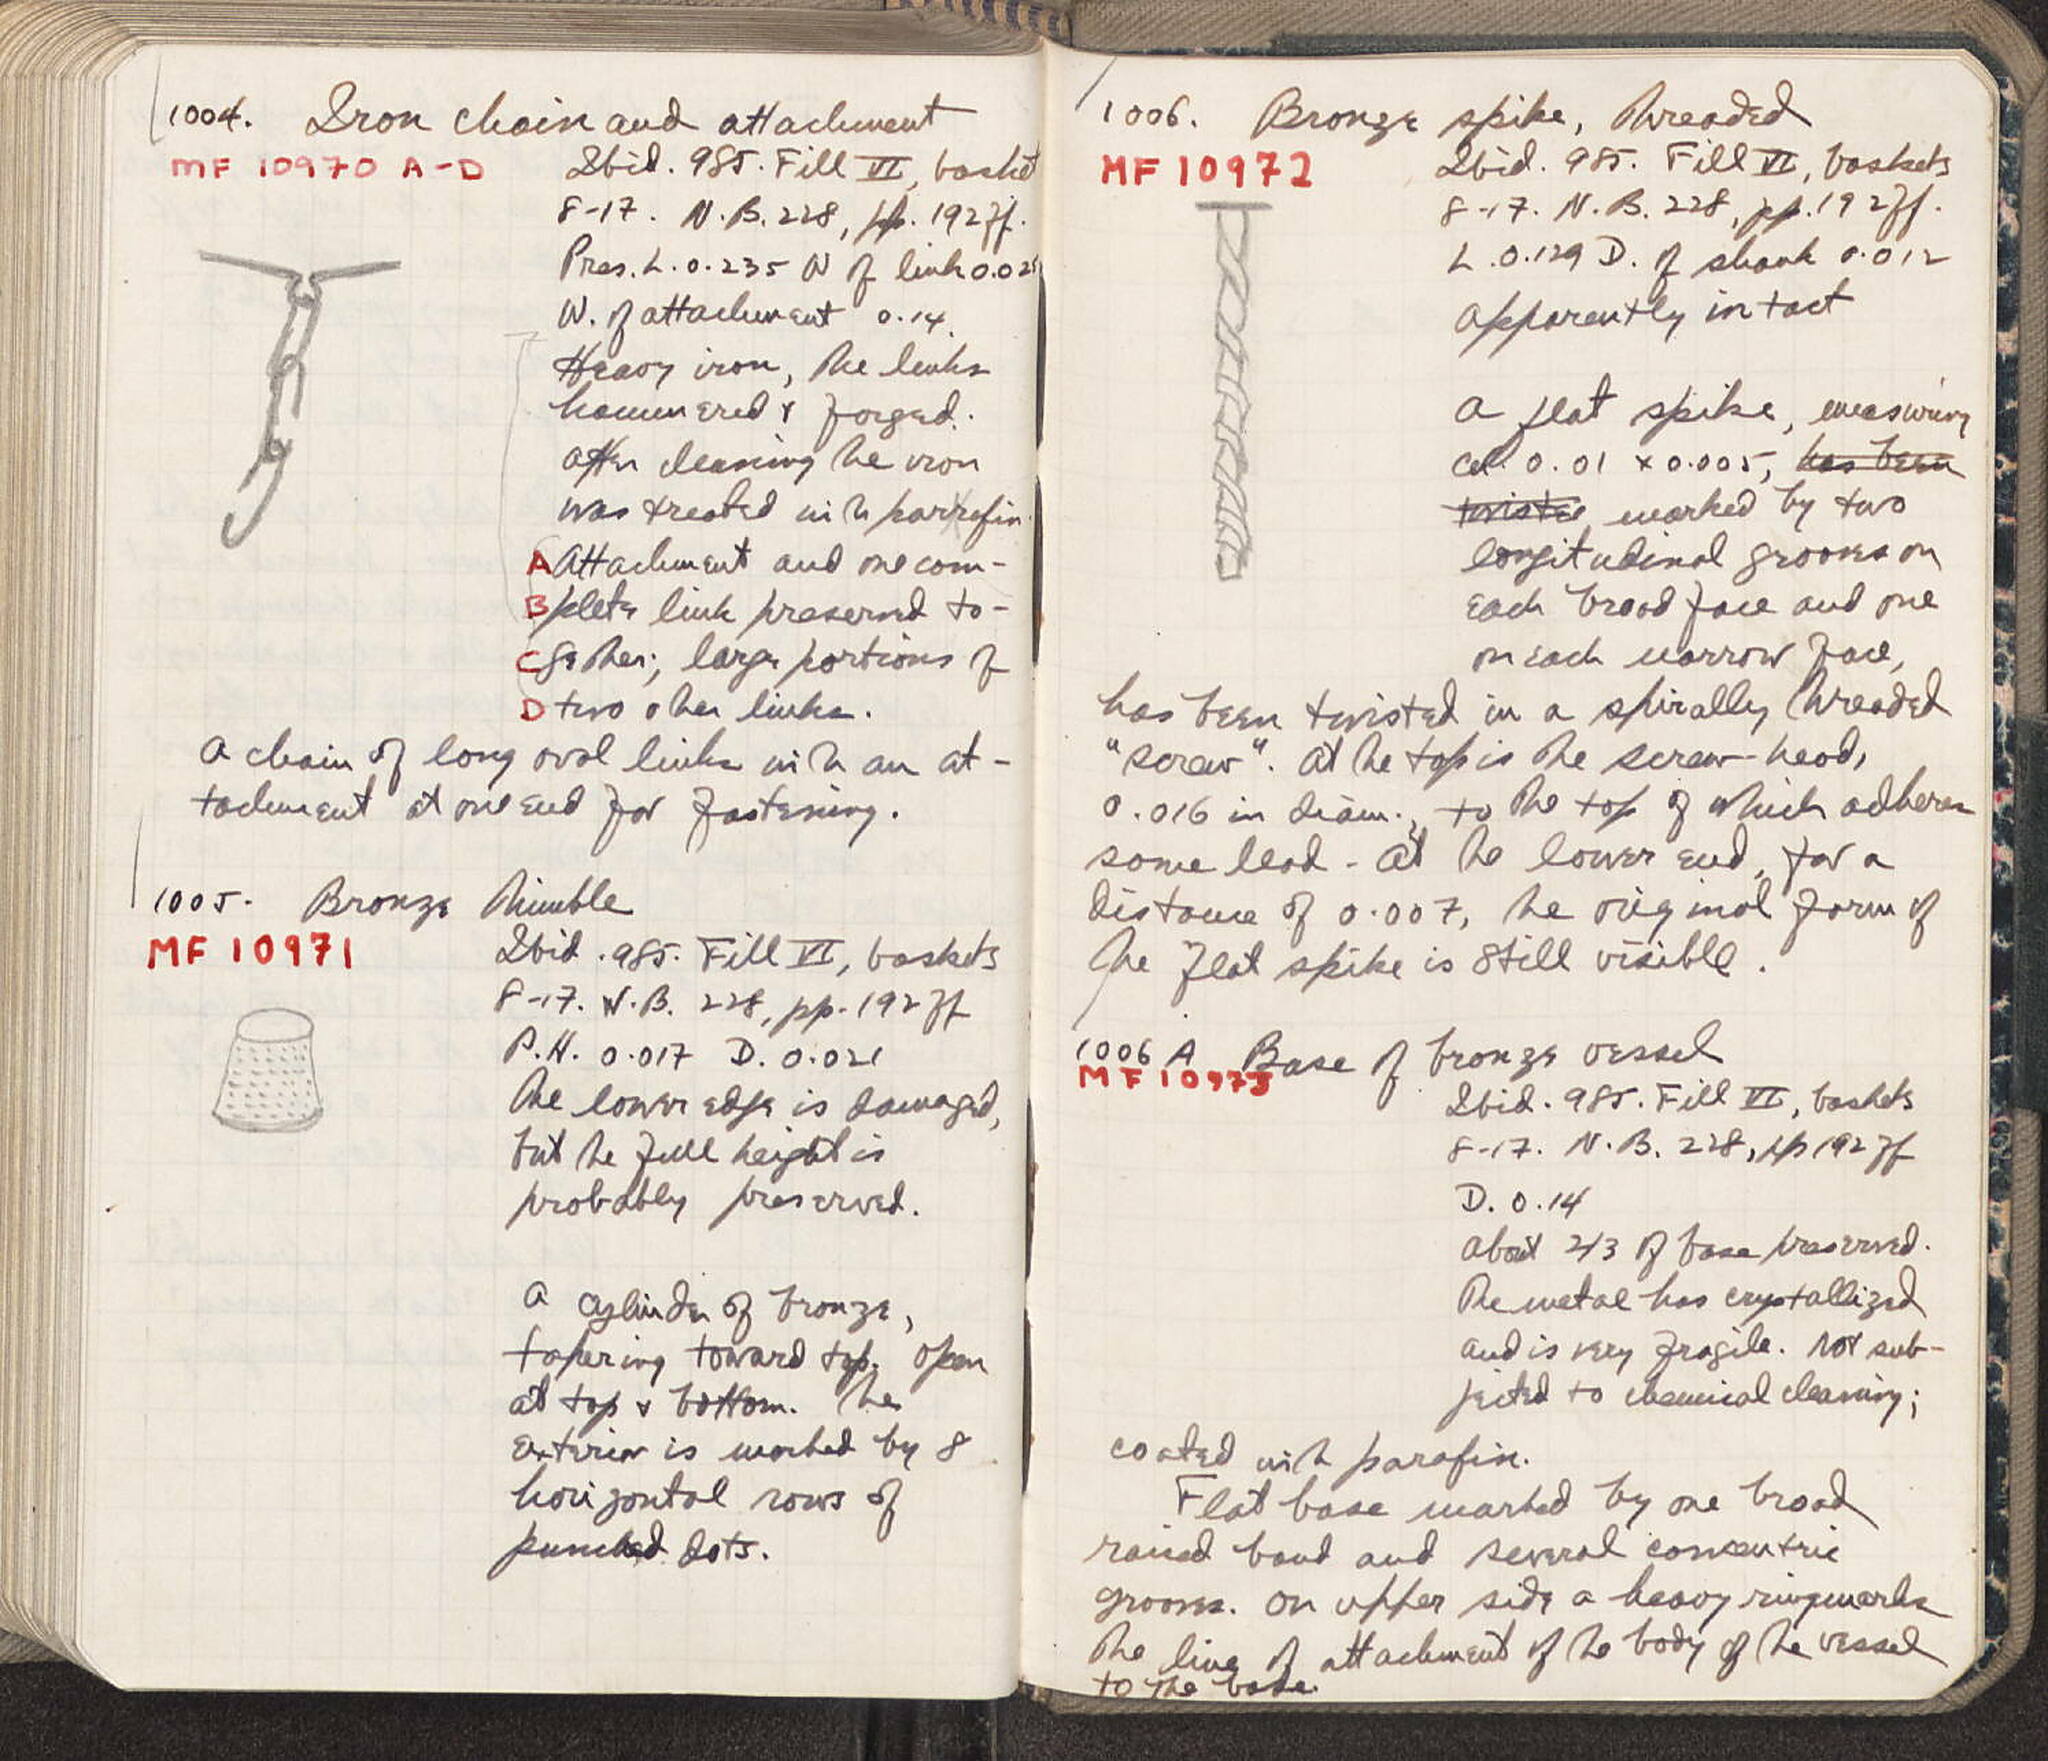 1004. Iron chain and attachment
MF 10970 A-D
Ibid. 985. Fill VI, basket
8-17. N.B. 228, pp. 192 ff.
Pres. L. 0.235 W of link 0.02
W. of attachment 0.14.
Heavy iron, the links
hammered & forged.
After cleaning the iron
was treated with parrafin.
A Attachment and one com-
B plete link preserved to-
C gether; large portions of
D two other links.
A chain of long oval links with an at-
tachment at one end for fastening.
1005. Bronze thimble
MF 10971
Ibid. 985. Fill VI, baskets
8-17. N.B. 228, pp. 192 ff
P.H. 0.017 D. 0.021
The lower edge is damaged,
but the full height is
probably preserved.
A cylinder of bronze,
tapering toward top. Open
at top & bottom. The
exterior is marked by 8
horizontal rows of
punched dots.
1006. Bronze spike, threaded
MF 10972
Ibid. 985. Fill VI, baskets
8-17. N.B. 228, pp. 192 ff.
L. 0.129 D. of shank 0.012
Apparently intact
A flat spike, measuring
ca. 0.01 x 0.005, has been
twisted marked by two
longitudinal grooves on
each broad face and one
on each narrow face,
has been twisted in a spirally threaded
"screw". At the top is the screw-head,
0.016 in diam., to the top of which adheres
some lead - At the lower end, for a
distance of 0.007, the original form of
the flat spike is still visible.
1006 A Base of bronze vessel
MF 10973
Ibid. 985. Fill VI, baskets
8-17. N.B. 228, pp 192 ff
D. 0.14
About 2/3 of base preserved.
The metal has crystallized
and is very fragile. Not sub-
jected to chemical cleaning;
coated with parafin.
Flat base marked by one broad
raised band and several concentric
grooves. On upper side a heavy ring marks
the line of attachment of the body of the vessel
to the base.